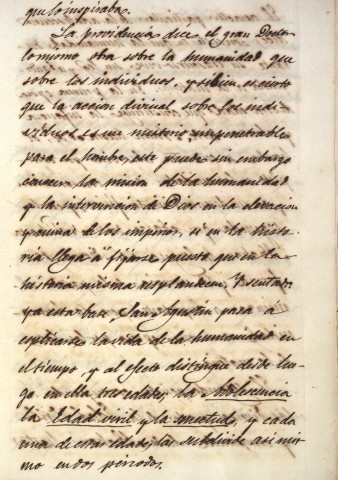 que lo inspiraba.
La providencia dice el gran Doctor
lo mismo obra sobre la humanidad que
sobre los individuos, y si bien es cierto
que la accion divina sobre los indi-
viduos es un misterio impenetrable
para el hombre, este puede sin embargo
conocer la mision de la humanidad
y la intervencion de Dios en la elevacion
y ruina de los imperios, si en la histo-
ria llega á fijarse puesto que en la
historia misma resplandecen. Y sentada
ya esta base, San Agustin pasa á
esplicarse la vida de la humanidad en
el tiempo, y al efecto distingue desde lue-
go en ella tres edades, la Adolescencia
la Edad viril y la senectud, y cada
una de estas edades, las subdivide asi mis-
mo en dos periodos.